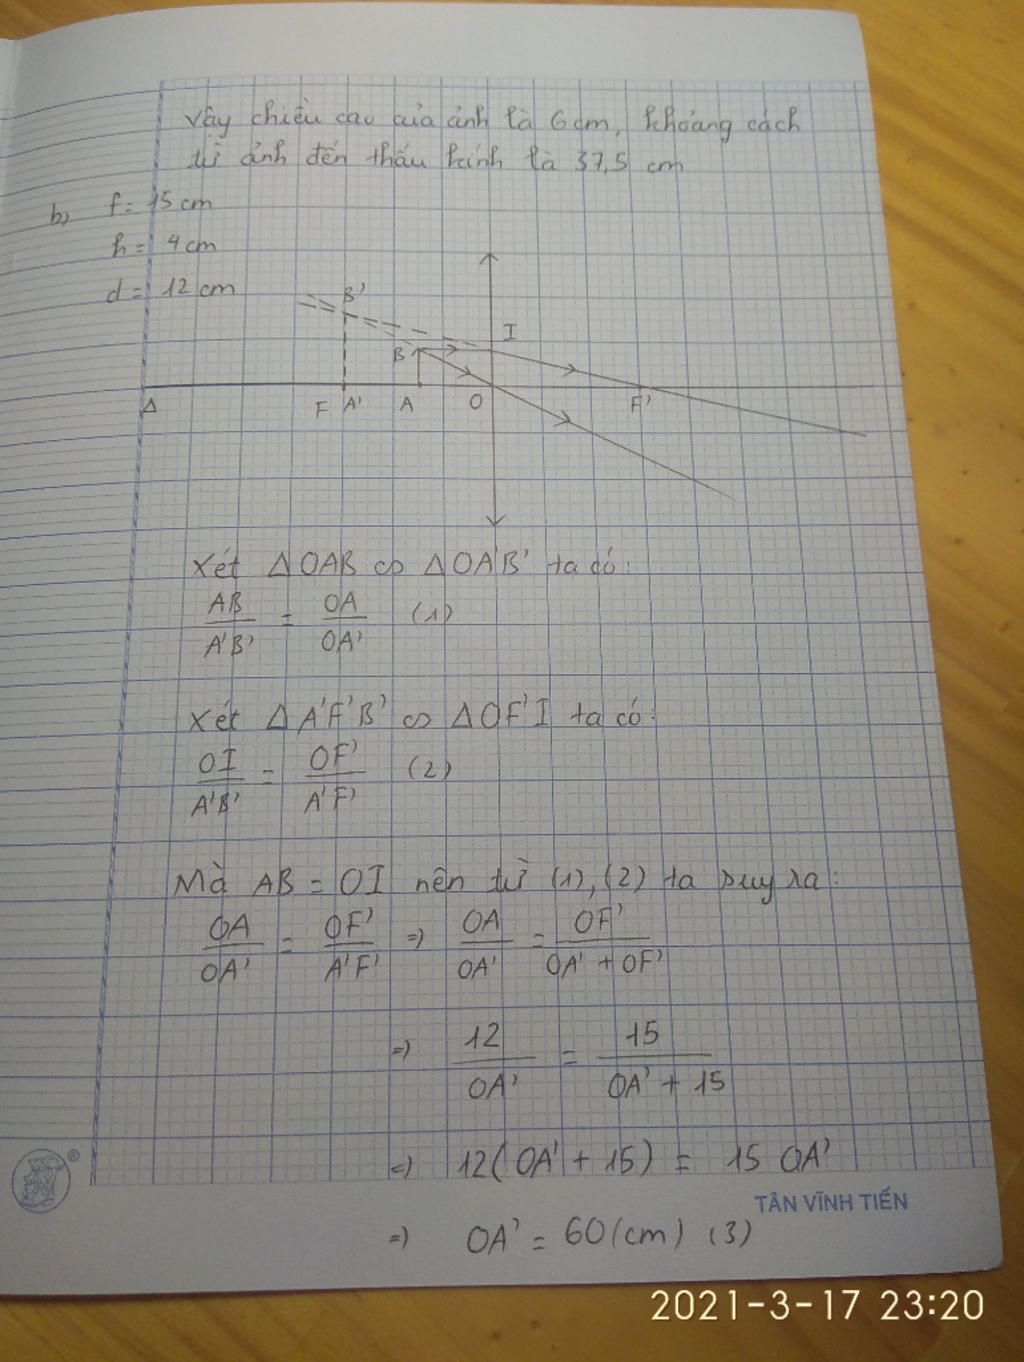 Vậy chiều cao của ảnh là 6cm, khoảng cách
từ ảnh đến thấu kính là 37,5 cm
b) f = 15 cm
h = 4cm
d = 12 cm
B'
I
B
Δ F A' A O F'
Xét Δ OAB ∽ Δ OA'B' ta có:
AB/A'B' = OA/OA' (1)
Xét Δ A'F'B' ∽ Δ OF'I ta có:
OI/A'B' = OF'/A'F' (2)
Mà AB = OI nên từ (1), (2) ta suy ra:
OA/OA' = OF'/A'F' => OA/OA' = OF'/OA' + OF'
=> 12/OA' = 15/OA' + 15
=> 12(OA' + 15) = 15 OA'
®
TÂN VĨNH TIẾN
=> OA' = 60 (cm) (3)
2021-3-17 23:20